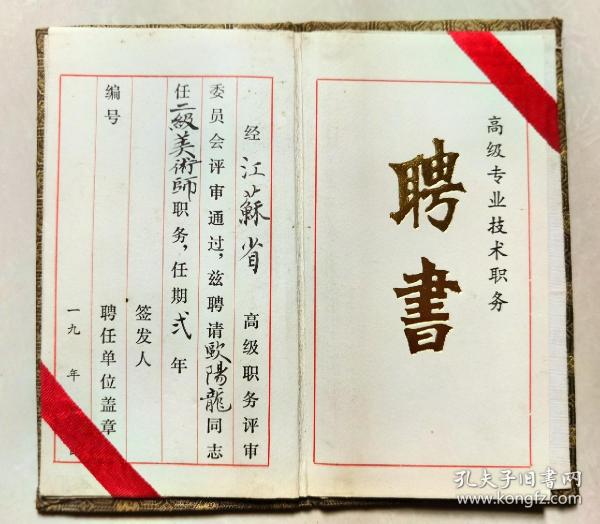 高级专业技术职务
聘書
经江蘇省高级职务评审
委员会评审通过，兹聘请歐陽龍同志
任二級美術師职务，任期弍年
签发人
聘任单位盖章
编号
一九 年
孔夫子旧书网
www.kongfz.com